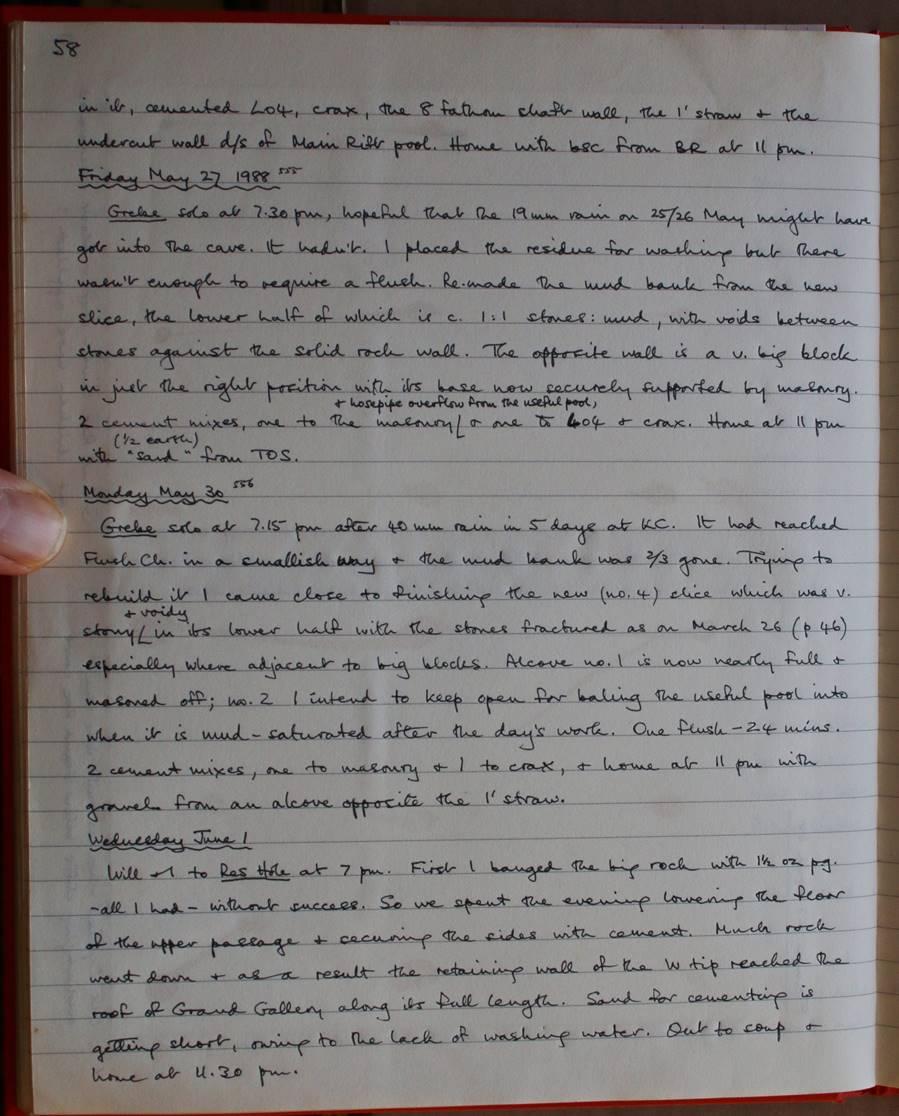 58
in it, cemented L04, crax, the 8 fathom shaft wall, the 1' straw + the
undercut wall d/s of Main Rift pool. Home with bsc from BR at 11 pm.
Friday May 27 1988 555
Grebe solo at 7.30 pm, hopeful that the 19 mm rain on 25/26 May might have
got into the cave. It hadn't. I placed the residue for washing but there
wasn't enough to require a flush. Re-made the mud bank from the new
slice, the lower half of which is c. 1:1 stones: mud, with voids between
stones against the solid rock wall. The opposite wall is a v. big block
in just the right position with its base now securely supported by masonry.
+ hosepipe overflow from the useful pool,
2 cement mixes, one to the masonry + one to L04 + crax. Home at 11 pm
(½ earth)
with "sand" from TOS.
Monday May 30 556
Grebe solo at 7.15 pm after 40 mm rain in 5 days at KC. It had reached
Flush Ch. in a smallish way + the mud bank was 2/3 gone. Trying to
rebuild it I came close to finishing the new (no. 4) slice which was v.
+ voidy
stony in its lower half with the stones fractured as on March 26 (p 46)
especially where adjacent to big blocks. Alcove no. 1 is now nearly full +
masoned off; no. 2 I intend to keep open for baling the useful pool into
when it is mud-saturated after the day's work. One flush - 24 mins.
2 cement mixes, one to masonry + 1 to crax, + home at 11 pm with
gravel from an alcove opposite the 1' straw.
Wednesday June 1
Will + I to Res Hole at 7 pm. First I banged the big rock with 1½ oz pg.
- all I had - without success. So we spent the evening lowering the floor
of the upper passage + securing the sides with cement. Much rock
went down + as a result the retaining wall of the W tip reached the
roof of Grand Gallery along its full length. Sand for cementing is
getting short, owing to the lack of washing water. Out to soup +
home at 11.30 pm.